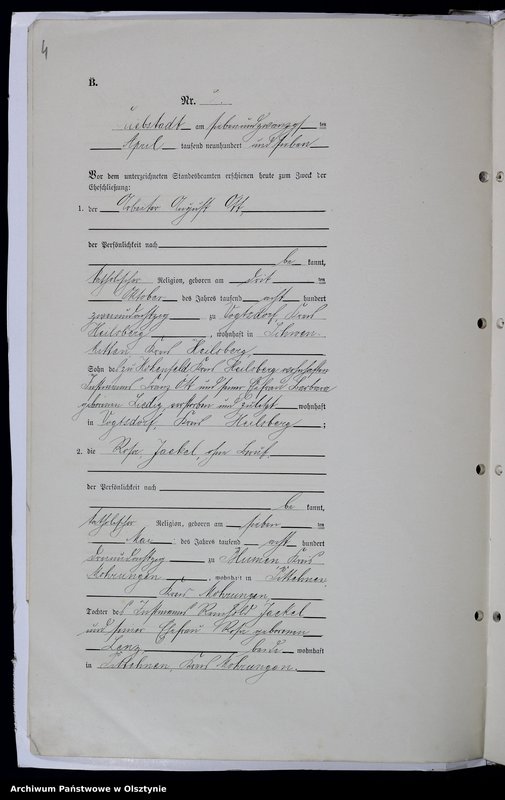 4
B.
Nr.
Liebstadt am siebenundzwanzig ten
April tausend neunhundert und sieben
Vor dem unterzeichneten Standesbeamten erschienen heute zum Zweck der
Eheschließung:
1. der Arbeiter August Ott,
der Persönlichkeit nach
be kannt,
katholischer Religion, geboren am drit ten
Oktober des Jahres tausend acht hundert
zweiundachtzig zu Vogtsdorf, Kreis
Heilsberg, wohnhaft in
Kreis Heilsberg,
Sohn des in Hohenfeld Kreis Heilsberg verstorbenen
Instmanns Franz Ott und seiner Ehefrau Barbara
geborenen verstorben und zuletzt wohnhaft
in Vogtsdorf, Kreis Heilsberg;
2. die Rosa Jaekel, ohne Beruf,
der Persönlichkeit nach
be kannt,
katholischer Religion, geboren am sieben ten
Mai des Jahres tausend acht hundert
dreiundachtzig zu Blumen Kreis
Mohrungen, wohnhaft in
Kreis Mohrungen,
Tochter des Instmanns Jaekel
und seiner Ehefrau Rosa geborenen
Lenz beide wohnhaft
in Kreis Mohrungen.
Archiwum Państwowe w Olsztynie